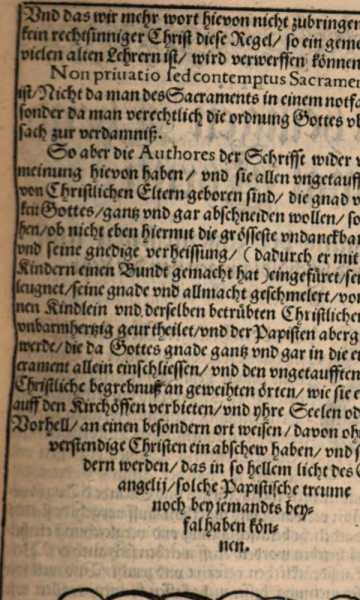 Vnd das wir mehr wort hievon nicht zubringen
kein rechtsinniger Christ diese Regel/ so ein geme
vielen alten Lehrern ist/ wird verwerffen können
Non priuatio sed contemptus Sacramen
ist/ Nicht da man des Sacraments in einem notfa
sonder da man verechtlich die ordnung Gottes vb
sach zur verdamniß.
So aber die Authores der Schrifft wider v
meinung hievon haben/ vnd sie allen vngetauff
von Christlichen Eltern geboren sind/ die gnad v
keit Gottes/ gantz vnd gar abschneiden wollen/ so
hen/ ob nicht eben hiermit die grösseste vndanckbar
vnd seine gnedige verheissung/ (dadurch er mit
Kindern einen Bundt gemacht hat) eingefüret/ sei
leugnet/ seine gnade vnd allmacht geschmelert/ vor
nen Kindlein vnd derselben betrübten Christliche
vnbarmhertzig geurtheilet/ vnd der Papisten aberg
werde/ die da Gottes gnade gantz vnd gar in die e
crament allein einschliessen/ vnd den vngetaufften
Christliche begrebnuß an geweihten örten/ wie sie e
auff den Kirchöffen verbieten/ vnd yhre Seelen od
Vorhell/ an einen besondern ort weisen/ davon oh
verstendige Christen ein abschew haben/ vnd s
dern werden/ das in so hellem licht des
angelij/ solche Papistische treume
noch bey jemandts bey-
fal haben kön-
nen.